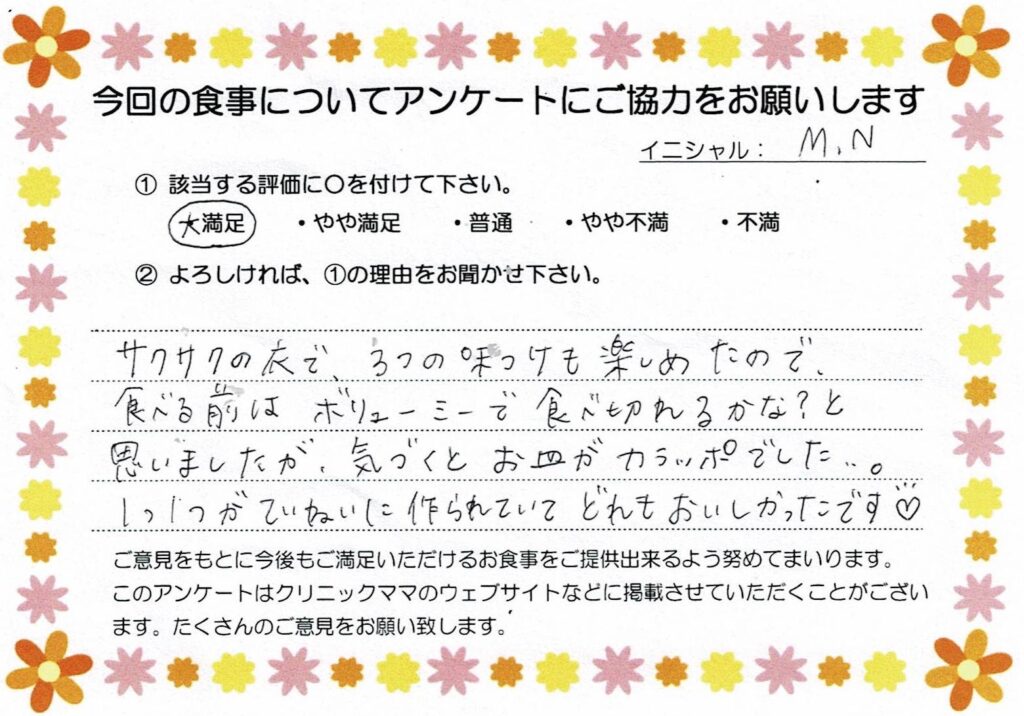 今回の食事についてアンケートにご協力をお願いします
イニシャル： M.N
① 該当する評価に〇を付けて下さい。
大満足 ・やや満足 ・普通 ・やや不満 ・不満
② よろしければ、①の理由をお聞かせ下さい。
サクサクの衣で、3つの味つけも楽しめたので、
食べる前は ボリューミーで 食べ切れるかな？と
思いましたが、気づくと お皿が カラッポでした…。
1つ1つが ていねいに 作られていて どれも おいしかったです♡
ご意見をもとに今後もご満足いただけるお食事をご提供出来るよう努めてまいります。
このアンケートはクリニックママのウェブサイトなどに掲載させていただくことがござい
ます。たくさんのご意見をお願い致します。